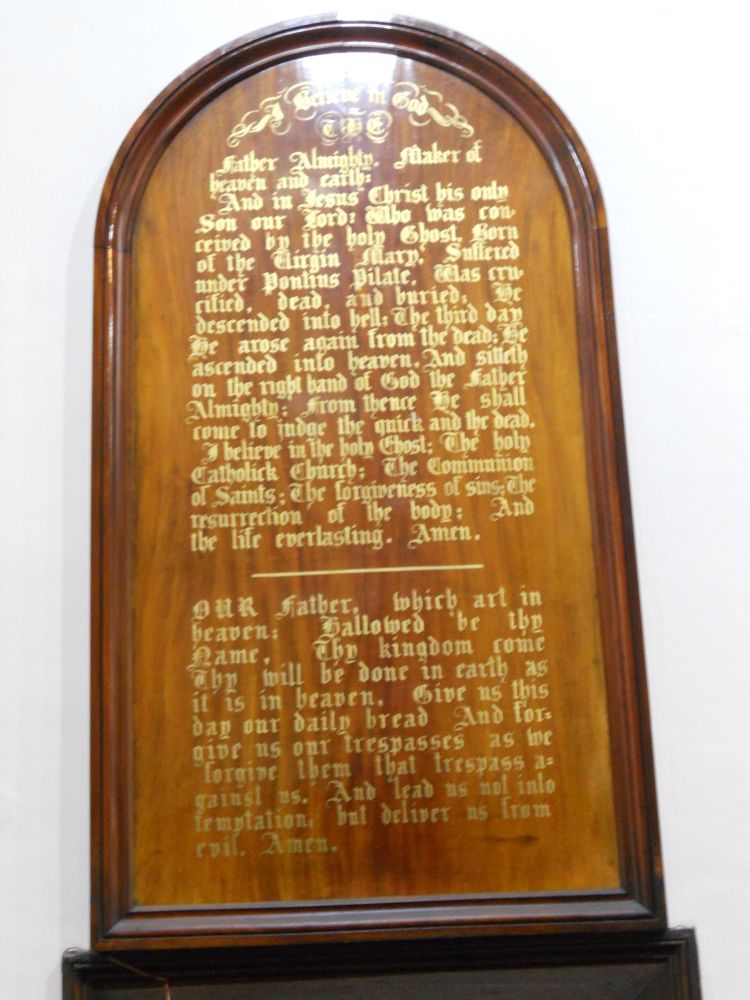 I Believe in God
THE
Father Almighty, Maker of
heaven and earth:
And in Jesus Christ his only
Son our Lord: Who was con-
ceived by the holy Ghost, Born
of the Virgin Mary, Suffered
under Pontius Pilate, Was cru-
cified, dead and buried; He
descended into hell; The third day
He arose again from the dead; He
ascended into heaven. And sitteth
on the right hand of God the Father
Almighty; From thence He shall
come to judge the quick and the dead.
I believe in the holy Ghost; The holy
Catholick Church; The Communion
of Saints; The forgiveness of sins; The
resurrection of the body; And
the life everlasting. Amen.
OUR Father, which art in
heaven; Hallowed be thy
Name, Thy kingdom come
Thy will be done in earth as
it is in heaven, Give us this
day our daily bread And for-
give us our trespasses as we
forgive them that trespass a-
gainst us. And lead us not into
temptation, but deliver us from
evil. Amen.